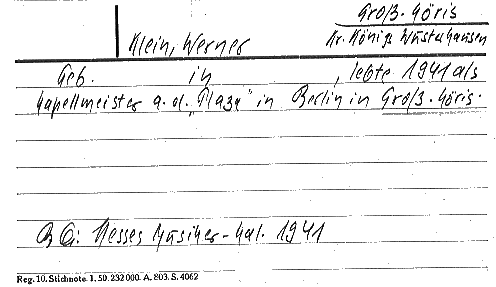 Groß-Göris
Klein, Werner Kr. Königs Wusterhausen
Geb. in , lebte 1941 als
Kapellmeister a. d. „Plaza" in Berlin in Groß-Göris.
Qu: Hesses Musiker-Kal. 1941
Reg. 10. Stichnote. 1. 50. 232000. A. 803. S. 4062